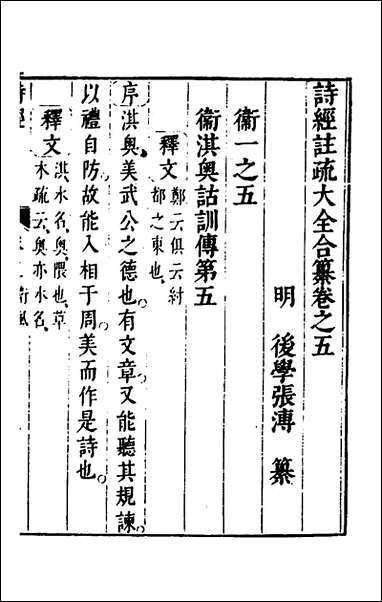 詩經註疏大全合纂卷之五
明 後學張溥 纂
衞一之五
衞淇奧詁訓傳第五
釋文 鄭云俱云紂
都之東也
序淇奧美武公之德也有文章又能聽其規諫
以禮自防故能入相于周美而作是詩也
釋文 淇水名奧隈也草
木疏云奧亦水名
詩經